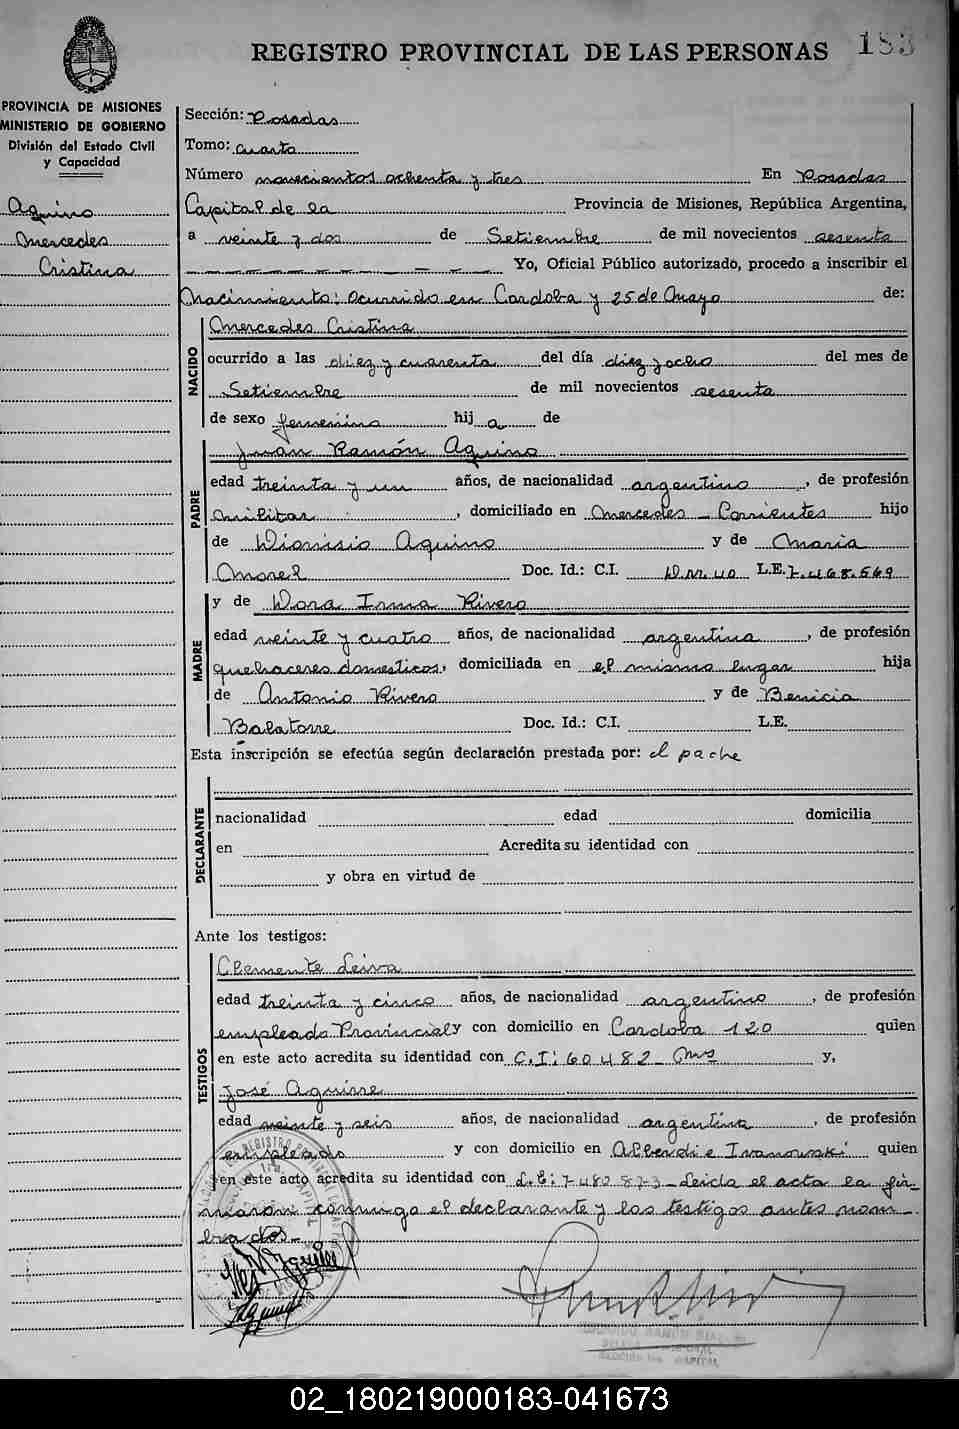 REGISTRO PROVINCIAL DE LAS PERSONAS
183
PROVINCIA DE MISIONES
MINISTERIO DE GOBIERNO
División del Estado Civil
y Capacidad
Aquino
Mercedes
Cristina
Sección: Posadas
Tomo: Cuarto
Número novecientos ochenta y tres En Posadas
Capital de la Provincia de Misiones, República Argentina,
a veinte y dos de Setiembre de mil novecientos sesenta
Yo, Oficial Público autorizado, procedo a inscribir el
Nacimiento: ocurrido en Cordoba y 25 de Mayo de:
NACIDO
Mercedes Cristina
ocurrido a las diez y cuarenta del día diez y ocho del mes de
Setiembre de mil novecientos sesenta
de sexo femenino hij a de
PADRE
Juan Ramón Aquino
edad treinta y un años, de nacionalidad argentino, de profesión
militar, domiciliado en Mercedes - Corrientes hijo
de Dionisio Aquino y de Maria
Morel Doc. Id.: C.I. D.M. 40 L.E. 7.468.569
MADRE
y de Dora Irma Rivero
edad veinte y cuatro años, de nacionalidad argentina, de profesión
quehaceres domesticos, domiciliada en el mismo lugar hija
de Antonio Rivero y de Benicia
Balatorre Doc. Id.: C.I. L.E.
Esta inscripción se efectúa según declaración prestada por: el padre
DECLARANTE
nacionalidad edad domicilia
en Acredita su identidad con
y obra en virtud de
Ante los testigos:
TESTIGOS
Clemente Leiva
edad treinta y cinco años, de nacionalidad argentino, de profesión
empleado Provincial y con domicilio en Cordoba 120 quien
en este acto acredita su identidad con C.I: 60482 - Mns y,
José Aguirre
edad veinte y seis años, de nacionalidad argentina, de profesión
empleado y con domicilio en Alberdi e Ivanowski quien
en este acto acredita su identidad con L.E: 7-482.873 - Leida el acta la fir-
maron conmigo el declarante y los testigos antes nom-
brados.-
02_180219000183-041673